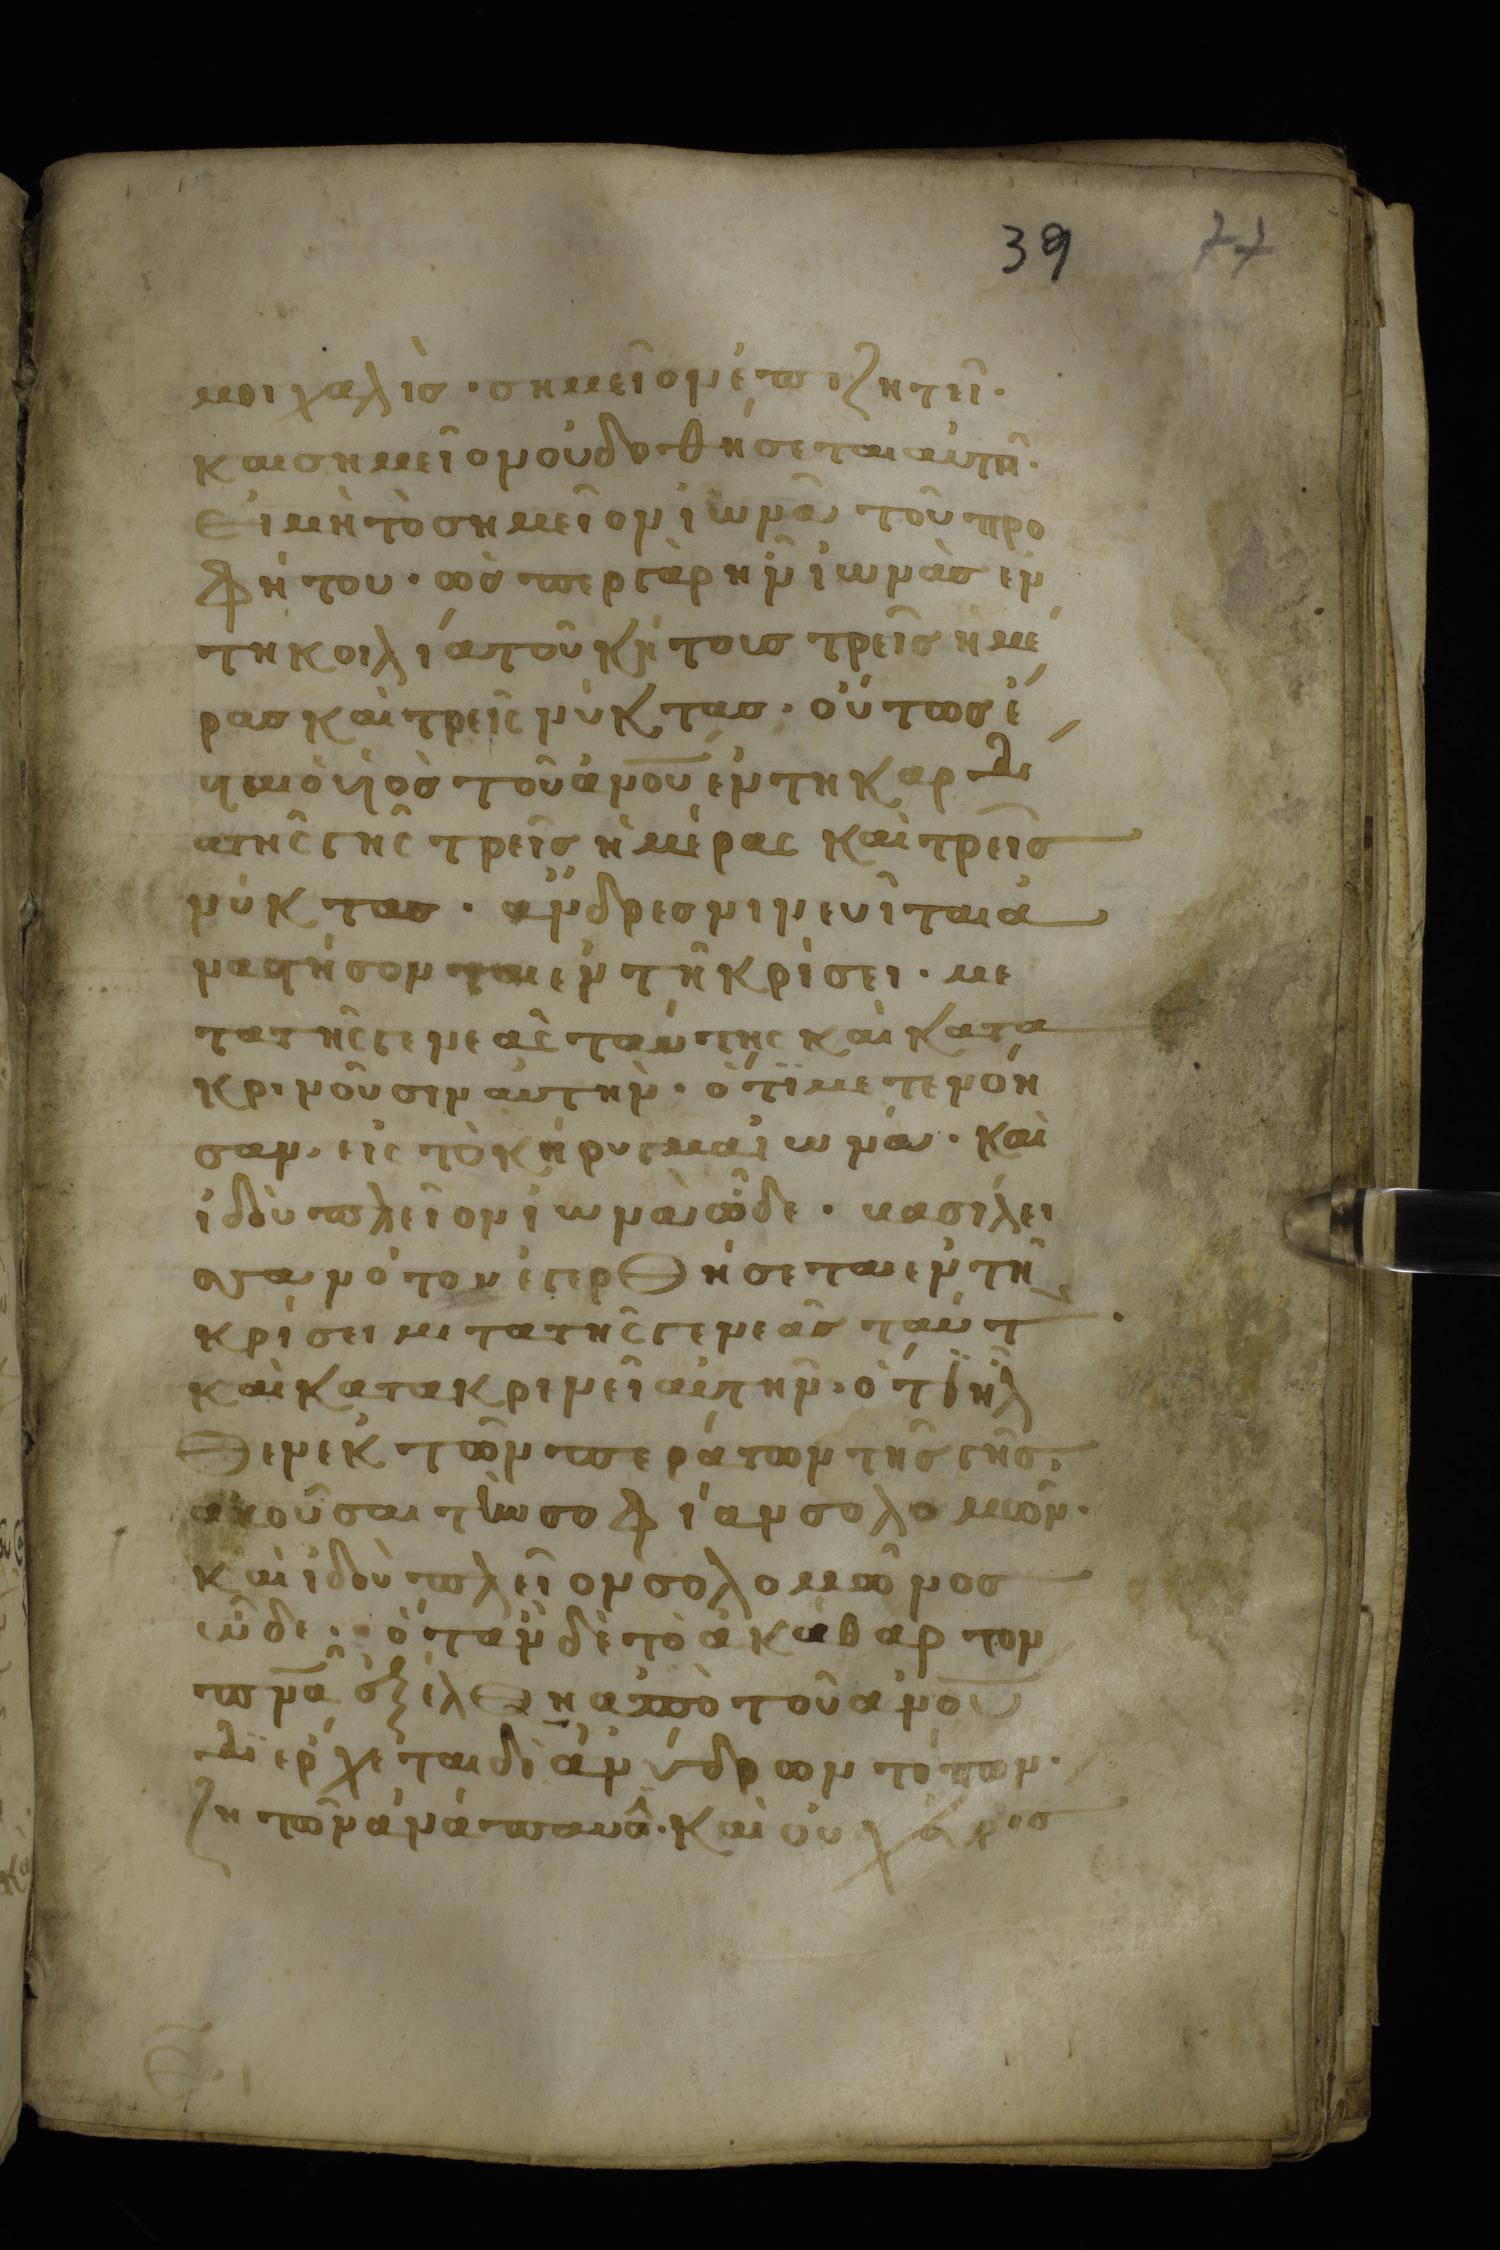 39 77
μοιχαλὶσ · σημεῖον ἐπιζητεῖ ·
και σημεῖον ου δοθήσεται αυτῆ ·
Ει μὴ τὸ σημεῖον ἰωνᾶ τοῦ προ
φήτου · ὡσπερ γὰρ ἦν ἰωνὰσ εν
τη κοιλία τοῦ κήτουσ τρεῖσ ἡμέ
ρασ και τρεῖς νύκτασ · ὅυτωσ ἔ
ται ὁ υἱὸσ τοῦ ανου εν τη καρδι
α τῆς γῆς τρεῖσ ἡμέρας και τρεῖσ
νύκτασ · ἄνδρεσ νινευῖται ἀ
ναστήσονται εν τῆ κρίσει · με
τα τῆς γενεᾶς ταύτης και κατα
κρινοῦσιν αυτην · ὅτϊ μετενόη
σαν, εις τὸ κήρυγμα ἰωνᾶ · και
ἰδοὺ πλεῖον ἰωνᾶ ὧδε · βασίλει
σσα νότου ἐγερθήσεται εν τῆ
κρίσει μετα τῆς γενεᾶσ ταύτ ·
και κατακρινεῖ αυτην · ὅτϊ ἦλ
θεν εκ τῶν περάτων τῆσ γῆσ,
ακοῦσαι τὴν σοφίαν σολομῶν ·
και ἰδοὺ πλεῖον σολομῶνοσ
ὧδε · ὅταν δὲ τὸ ἀκάθαρτον
πνᾶ ἐξέλθη απὸ τοῦ ανου
διερχεται δι ἀνύδρων τόπων ·
ζητῶν ἀνάπαυσ · και ουχ ἑυρισ